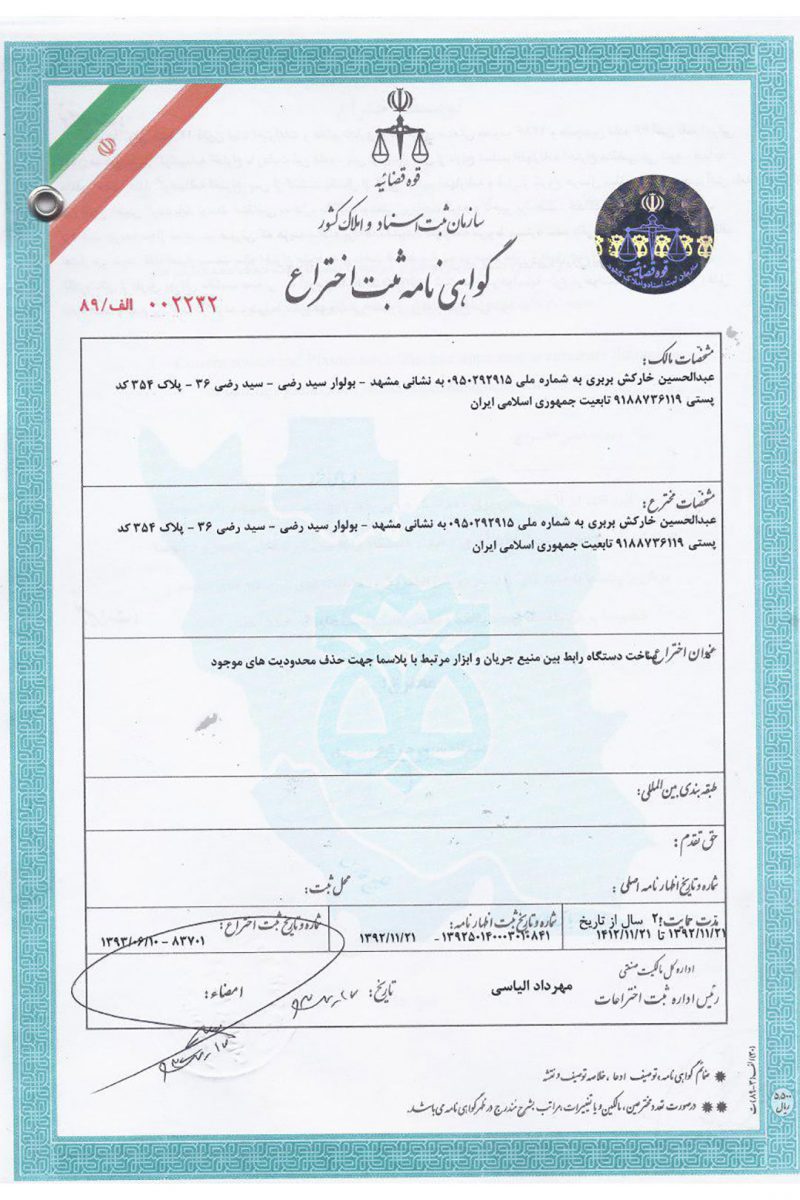 قوه قضائیه
سازمان ثبت اسناد و املاک کشور
گواهی نامه ثبت اختراع
الف/۸۹ ۰۰۲۲۳۲
قوه قضائیه
سازمان ثبت اسناد و املاک کشور
مشخصات مالک:
عبدالحسین خارکش بربری به شماره ملی ۰۹۵۰۲۹۲۹۱۵ به نشانی مشهد - بولوار سید رضی - سید رضی ۳۶ - پلاک ۳۵۴ کد
پستی ۹۱۸۸۷۳۶۱۱۹ تابعیت جمهوری اسلامی ایران
مشخصات مخترع:
عبدالحسین خارکش بربری به شماره ملی ۰۹۵۰۲۹۲۹۱۵ به نشانی مشهد - بولوار سید رضی - سید رضی ۳۶ - پلاک ۳۵۴ کد
پستی ۹۱۸۸۷۳۶۱۱۹ تابعیت جمهوری اسلامی ایران
عنوان اختراع: ساخت دستگاه رابط بین منبع جریان و ابزار مرتبط با پلاسما جهت حذف محدودیت های موجود
طبقه بندی بین المللی:
حق تقدم:
شماره و تاریخ اظهارنامه اصلی: محل ثبت:
مدت حمایت: ۲۰ سال از تاریخ
۱۳۹۲/۱۱/۲۱ تا ۱۴۱۲/۱۱/۲۱
شماره و تاریخ ثبت اظهارنامه:
۱۳۹۲۵۰۱۴۰۰۰۳۰۱۰۸۴۱- ۱۳۹۲/۱۱/۲۱
شماره و تاریخ ثبت اختراع:
۸۳۷۰۱ - ۱۳۹۳/۰۶/۱۰
اداره کل مالکیت صنعتی
رئیس اداره ثبت اختراعات مهرداد الیاسی تاریخ: امضاء:
✸ ضمائم گواهی نامه، توصیف، ادعا، خلاصه توصیف و نقشه
✸✸ در صورت تعدد مخترعین، مالکین و یا تغییرات، مراتب بشرح مندرج در ظهر گواهی نامه می باشد.
۵,۵۰۰
ریال